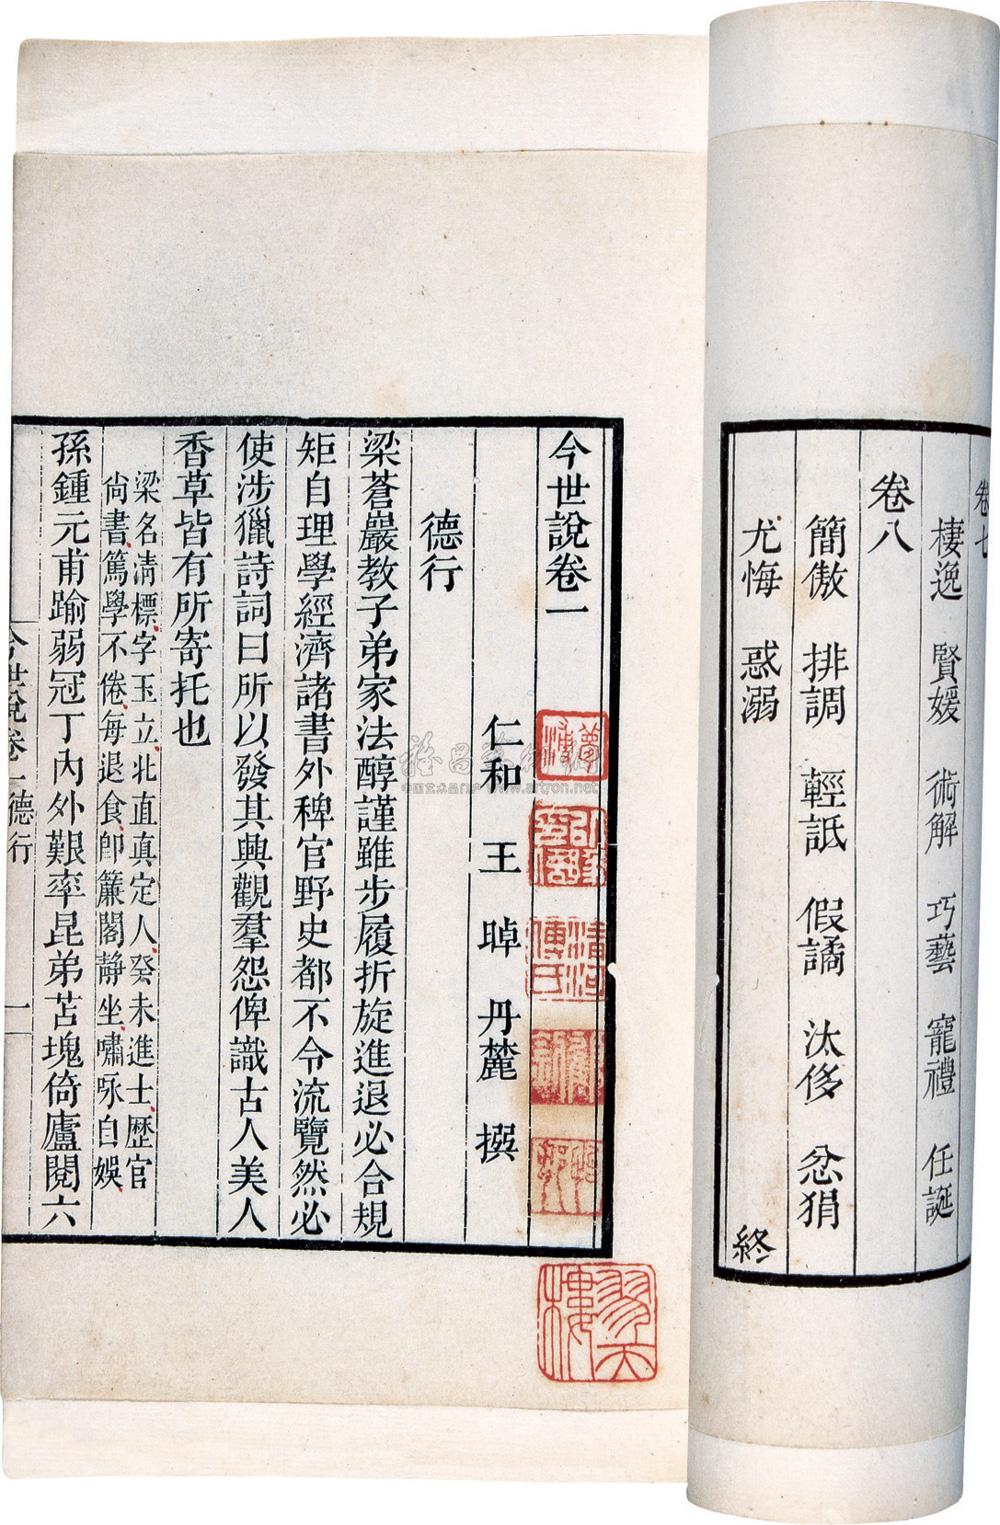 卷七
棲逸 賢媛 術解 巧藝 寵禮 任誕
卷八
簡傲 排調 輕詆 假譎 汰侈 忿狷
尤悔 惑溺
終
今世說卷一
仁和 王 晫 丹麓 撰
德行
梁蒼巖教子弟家法醇謹雖步履折旋進退必合規
矩自理學經濟諸書外稗官野史都不令流覽然必
使涉獵詩詞曰所以發其興觀羣怨俾識古人美人
香草皆有所寄托也
梁名清標字玉立北直真定人癸未進士歷官
尙書篤學不倦每退食卽簾閣靜坐嘯咏自娛
孫鍾元甫踰弱冠丁內外艱率昆弟苫塊倚廬閱六
今世說卷一德行
一
清河
傅氏
中国艺术品门户 www.artron.net